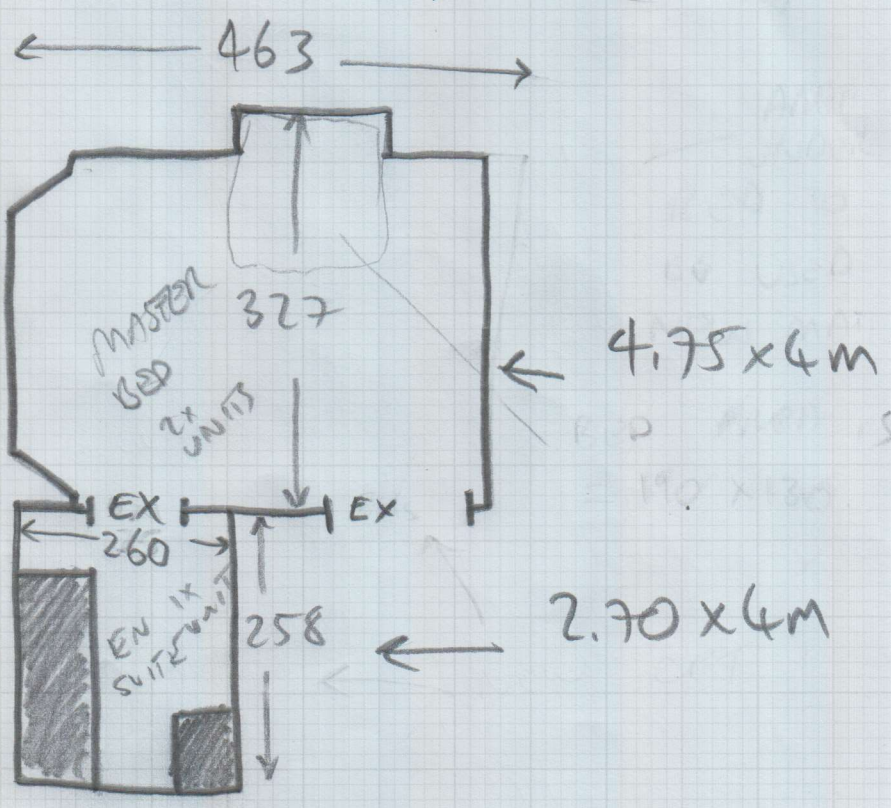 463
327
MASTER
BED
2X
UNITS
4.75 x 4 m
EX
EX
260
EN
SUITE
1X
UNIT
258
2.70 x 4M